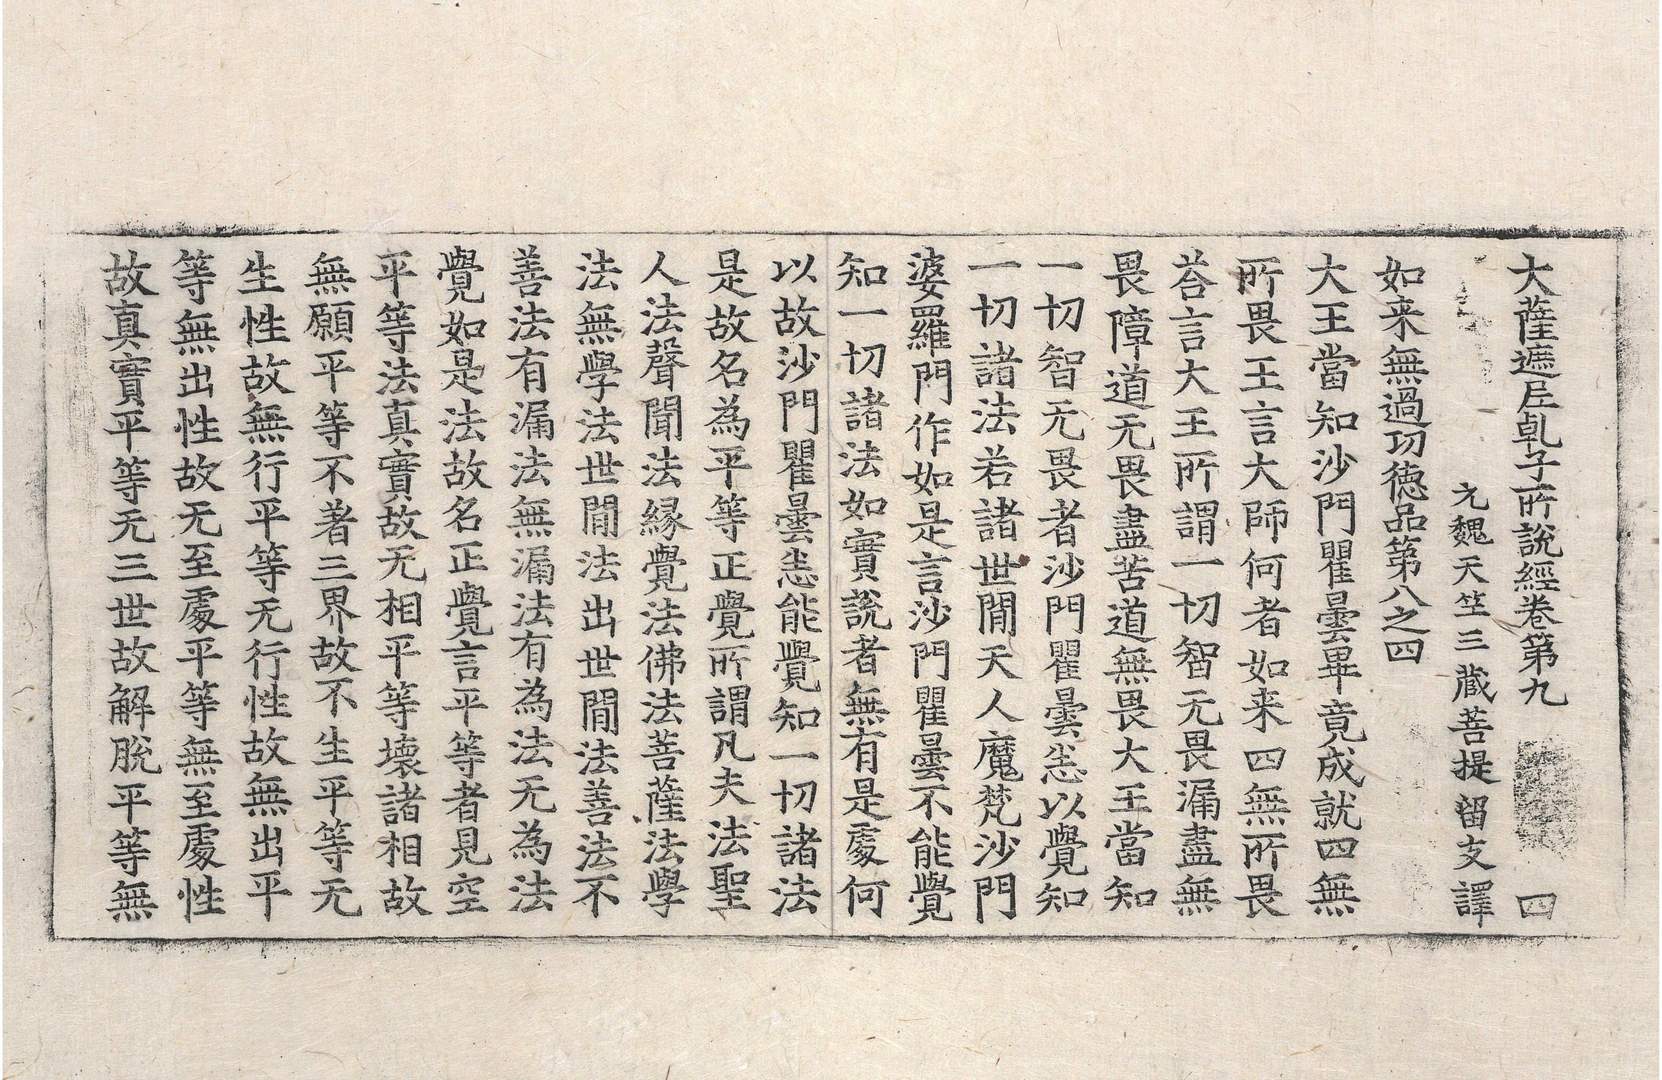 大薩遮尼乹子所說經卷第九 四
元魏天竺三藏菩提留支譯
如来無過功德品第八之四
大王當知沙門瞿曇畢竟成就四無
所畏王言大師何者如来四無所畏
荅言大王所謂一切智无畏漏盡無
畏障道无畏盡苦道無畏大王當知
一切智无畏者沙門瞿曇悉以覺知
一切諸法若諸世間天人魔梵沙門
婆羅門作如是言沙門瞿曇不能覺
知一切諸法如實說者無有是處何
以故沙門瞿曇悉能覺知一切諸法
是故名為平等正覺所謂凡夫法聖
人法聲聞法緣覺法佛法菩薩法學
法無學法世間法出世間法善法不
善法有漏法無漏法有為法无為法
覺如是法故名正覺言平等者見空
平等法真實故无相平等壞諸相故
無願平等不著三界故不生平等无
生性故無行平等无行性故無出平
等無出性故无至處平等無至處性
故真實平等无三世故解脫平等無